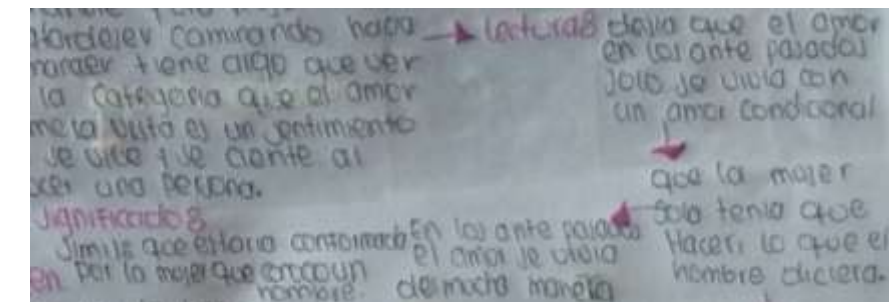 Atardecer caminando hacia
tiene algo que ver
la categoria que el amor
vista es un sentimiento
se vive y se ciente al
una persona.
Significado:
Simile que estaria conformado
en por la mujer que
hombre.
Lectura: decia que el amor
en los ante pasados
solo se vivia con
un amor condicional
que la mujer
solo tenia que
Hacer: lo que el
hombre diciera.
En los ante pasados
el amor se vivia
de mucha manera